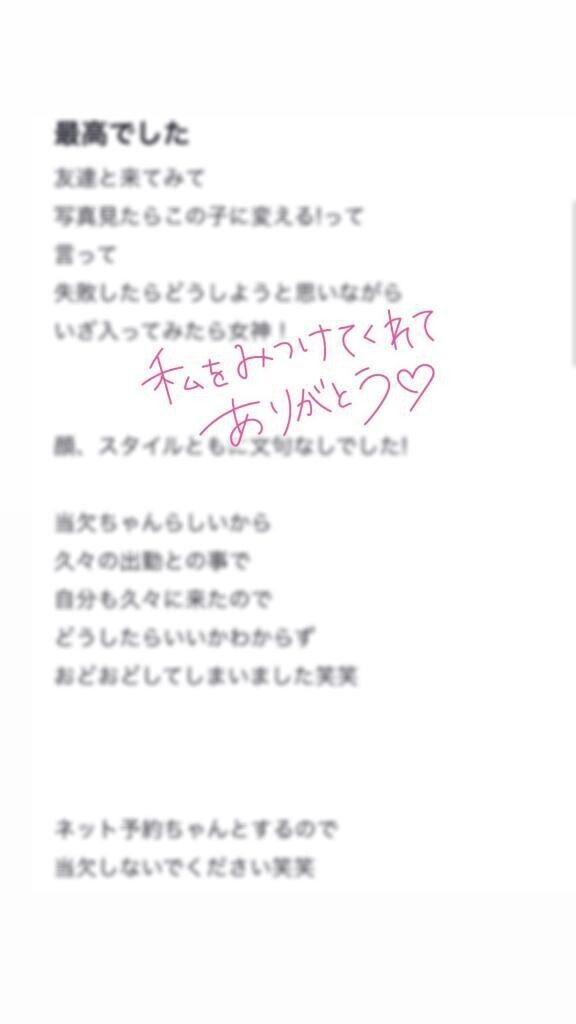 最高でした
友達と来てみて
写真見たらこの子に変える!って
言って
失敗したらどうしようと思いながら
いざ入ってみたら女神！
私をみつけてくれて
ありがとう♡
顔、スタイルともに文句なしでした!
当欠ちゃんらしいから
久々の出勤との事で
自分も久々に来たので
どうしたらいいかわからず
おどおどしてしまいました笑笑
ネット予約ちゃんとするので
当欠しないでください笑笑